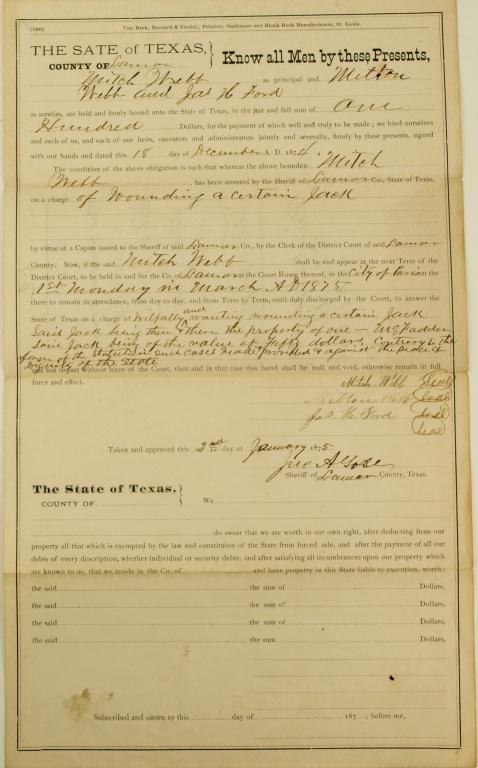 [1900] Van Beek, Barnard & Tinsley, Printers, Stationers and Blank Book Manufacturers, St. Louis.
THE SATE of TEXAS,
COUNTY OF Lamar
Know all Men by these Presents,
Mitch Webb as principal and Milton
Webb and Jas H. Ford
as sureties, are held and firmly bound unto the State of Texas, in the just and full sum of One
Hundred Dollars, for the payment of which well and truly to be made; we bind ourselves
and each of us, and each of our heirs, executors and administrators jointly and severally, firmly by these presents, signed
with our hands and dated this 18 day of December A. D. 1874.
The condition of the above obligation is such that whereas the above bounden Mitch
Webb, has been arrested by the Sheriff of Lamar Co., State of Texas,
on a charge of Wounding a certain Jack
by virtue of a Capias issued to the Sheriff of said Lamar Co., by the Clerk of the District Court of said Lamar
County. Now, if the said Mitch Webb shall be and appear at the next Term of the
District Court, to be held in and for the Co. of Lamar at the Court House thereof, in the City of Paris on the
1st Monday in March AD 1875
there to remain in attendance, from day to day, and from Term to Term, until duly discharged by the Court, to answer the
State of Texas on a charge of Wilfully and wanting wounding a certain Jack
Said Jack being then & there the property of one – McFadden
Said Jack being of the value of fifty dollars, Contrary to the
form of the Statute in such cases made & provided & against the peace &
Dignity of the State
and not depart without leave of the Court, then and in that case this bond shall be null and void, otherwise remain in full
force and effect.
Mitch Webb Seal
Milton Webb Seal
Jas H. Ford Seal
Seal
Taken and approved this 2nd day of January 1875
Sheriff of Lamar County, Texas.
The State of Texas,
COUNTY OF We
do swear that we are worth in our own right, after deducting from our
property all that is exempted by the law and constitution of the State from forced sale, and after the payment of all our
debts of every description, whether individual or security debts, and after satisfying all incumbrances upon our property which
are known to us, that we reside in the Co. of and have property in this State liable to execution, worth:
the said the sum of Dollars,
the said the sum of Dollars,
the said the sum of Dollars,
the said the sum Dollars,
Subscribed and sworn to this day of 187 , before me,